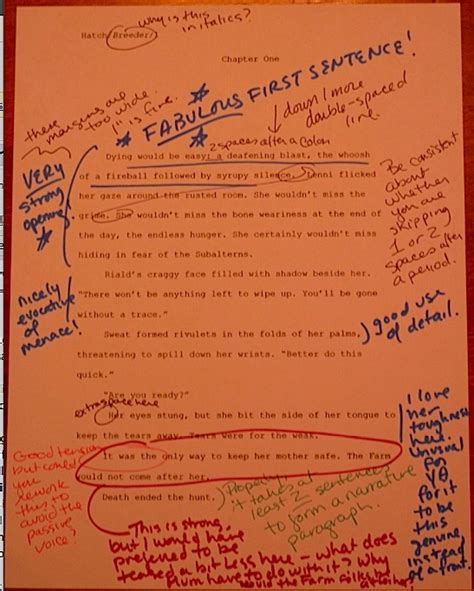 Hatch/Breeder/
why is this
in italics?
Chapter One
these
margins are
too wide.
1" is fine.
FABULOUS FIRST SENTENCE!
↓down 1 more
double-spaced
line.
2 spaces after a colon
VERY
strong
opening
Dying would be easy: a deafening blast, the whoosh
of a fireball followed by syrupy silence. Tenni flicked
her gaze around the rusted room. She wouldn't miss the
grime. She wouldn't miss the bone weariness at the end of
the day, the endless hunger. She certainly wouldn't miss
hiding in fear of the Subalterns.
Be consistent
about
whether
you are
skipping
1 or 2
spaces after
a period.
nicely
evocative
of
menace!
Riald's craggy face filled with shadow beside her.
"There won't be anything left to wipe up. You'll be gone
without a trace."
Sweat formed rivulets in the folds of her palms,
threatening to spill down her wrists. "Better do this
quick."
good use
of detail.
"Are you ready?"
extra space here
Her eyes stung, but she bit the side of her tongue to
keep the tears away. Tears were for the weak.
It was the only way to keep her mother safe. The Farm
would not come after her.
Death ended the hunt.
I love
her
toughness
here.
Unusual
for
YA
for it
to be
this
genuine,
instead
of a front.
Good tension
but could
you
rework
this to
avoid the
passive
voice?
Properly
it takes at
least 2 sentences
to form a narrative
paragraph.
This is strong,
but I would have
preferred to be
teased a bit less here - what does
Plum have to do with it? Why
would the Farm follow
after her?